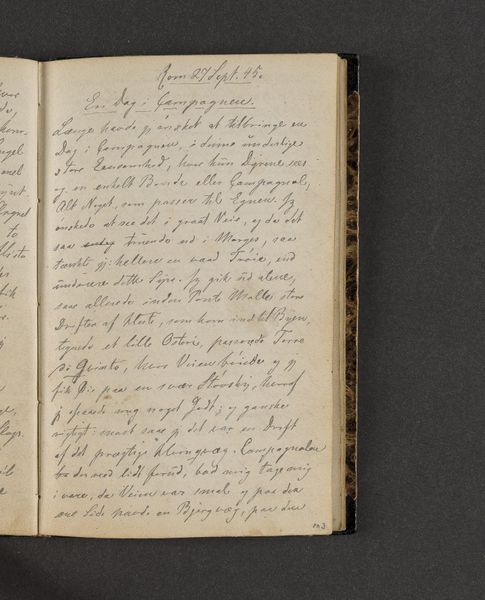 Rom 27 Sept. 45.
En Dag i Campagnen.
Længe havde jeg ønsket at tilbringe en
Dag i Campagnen, i denne underlige
store Eensomhed, hvor kun Dyrene sees
og en enkelt Bonde eller Campagnol,
Alt Noget, som passer til Egnen. Jeg
ønskede at see det i graat Veir, og da det
saa truende ud i Morges, saa
tænkte jeg: hellere en vaad Trøie, end
undvære dette Syn. Jeg gik ud alene,
saae allerede inden Ponte Molle store
Drifter af som kom ind til Byen
tegnede et lille Osteri, passerede Torre
di Quinto, hvor Veien bøiede og jeg
fik Øie paa en svær Støvsky, hvoraf
jeg spaaede mig noget Godt; og ganske
rigtigt: snart saae jeg det var en Drift
af det prægtige Hornqvæg. Campagnolen
der red lidt forud, bad mig tage mig
i vare, da Veien var smal og paa den
ene Side havde en Bjergvæg, paa den